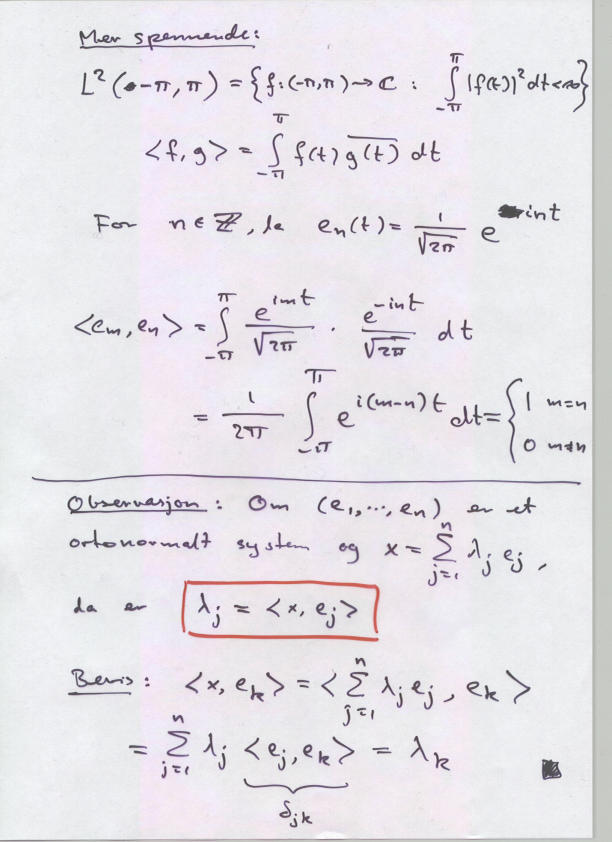 Mer spennende:
L²(-π, π) = {f: (-π,π) → ℂ : ∫_{-π}^{π} |f(t)|² dt < ∞}
<f, g> = ∫_{-π}^{π} f(t) \overline{g(t)} dt
For n ∈ ℤ, la e_n(t) = \frac{1}{\sqrt{2π}} e^{int}
<e_m, e_n> = ∫_{-π}^{π} \frac{e^{imt}}{\sqrt{2π}} · \frac{e^{-int}}{\sqrt{2π}} dt
= \frac{1}{2π} ∫_{-π}^{π} e^{i(m-n)t} dt = { 1 m=n
0 m≠n
Observasjon: Om (e_1, ..., e_n) er et
ortonormalt system og x = ∑_{j=1}^{n} λ_j e_j,
da er λ_j = <x, e_j>
Bevis: <x, e_k> = <∑_{j=1}^{n} λ_j e_j, e_k>
= ∑_{j=1}^{n} λ_j <e_j, e_k> = λ_k
δ_{jk}